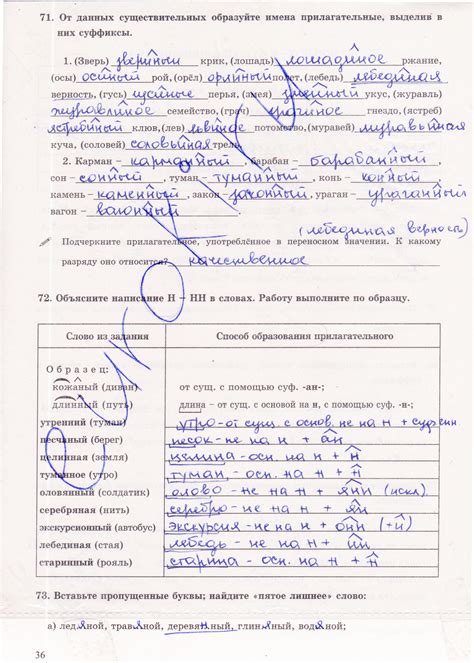 71. От данных существительных образуйте имена прилагательные, выделив в
них суффиксы.
1. (Зверь) звериный крик, (лошадь) лошадиное ржание,
(осы) осиный рой, (орёл) орлиный полет, (лебедь) лебединая
верность, (гусь) гусиные перья, (змея) змеиный укус, (журавль)
журавлиное семейство, (грач) грачиное гнездо, (ястреб)
ястребиный клюв, (лев) львиное потомство, (муравей) муравьиная
куча, (соловей) соловьиная трель.
2. Карман – карманный, барабан – барабанный,
сон – сонный, туман – туманный, конь – конный,
камень – каменный, закон – законный, ураган – ураганный
вагон – вагонный.
(лебединая верность)
Подчеркните прилагательное, употреблённое в переносном значении. К какому
разряду оно относится? качественное
72. Объясните написание Н – НН в словах. Работу выполните по образцу.
Слово из задания Способ образования прилагательного
Образец:
кожаный (диван) от сущ. с помощью суф. -ан-;
длинный (путь) длина – от сущ. с основой на н, с помощью суф. -н-;
утренний (туман) утро - от сущ. с основ. не на н + суф н
песчаный (берег) песок - не на н + ан
целинная (земля) целина - осн. на н + н
туманное (утро) туман - осн. на н + н
оловянный (солдатик) олово - не на н + янн (искл.)
серебряная (нить) серебро - не на н + ян
экскурсионный (автобус) экскурсия - не на н + онн (+й)
лебединая (стая) лебедь - не на н + ин
старинный (рояль) старина - осн. на н + н
73. Вставьте пропущенные буквы; найдите «пятое лишнее» слово:
а) ледяной, травяной, деревянный, глиняный, водяной;
36